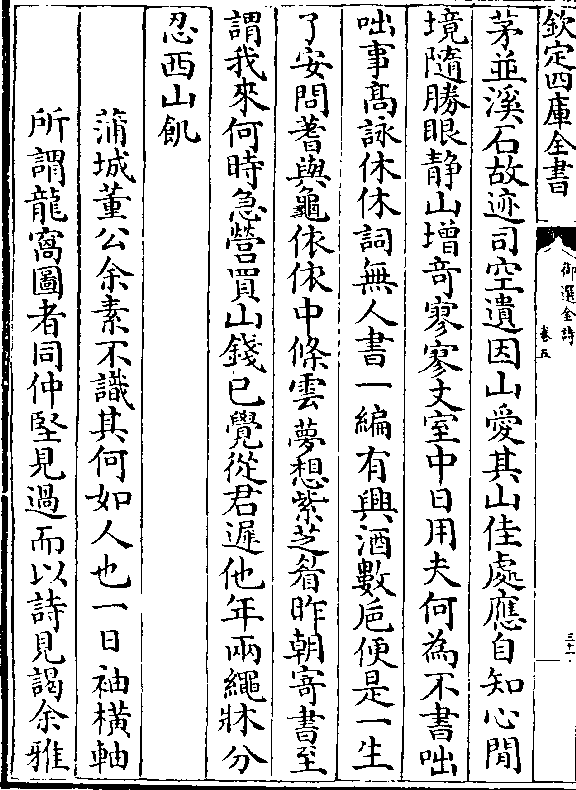 欽定四庫全書
御選金詩
卷五
三十一
茅並溪石故迹司空遺因山愛其山佳處應自知心閒
境隨勝眼静山增竒寥寥丈室中日用夫何為不書咄
咄事髙詠休休詞無人書一編有興酒數巵便是一生
了安問蓍與龜依依中條雲夢想紫芝眉昨朝寄書至
謂我來何時急營買山錢已覺從君遲他年兩繩牀分
忍西山飢
蒲城董公余素不識其何如人也一日袖橫軸
所謂龍窩圖者同仲堅見過而以詩見謁余雅